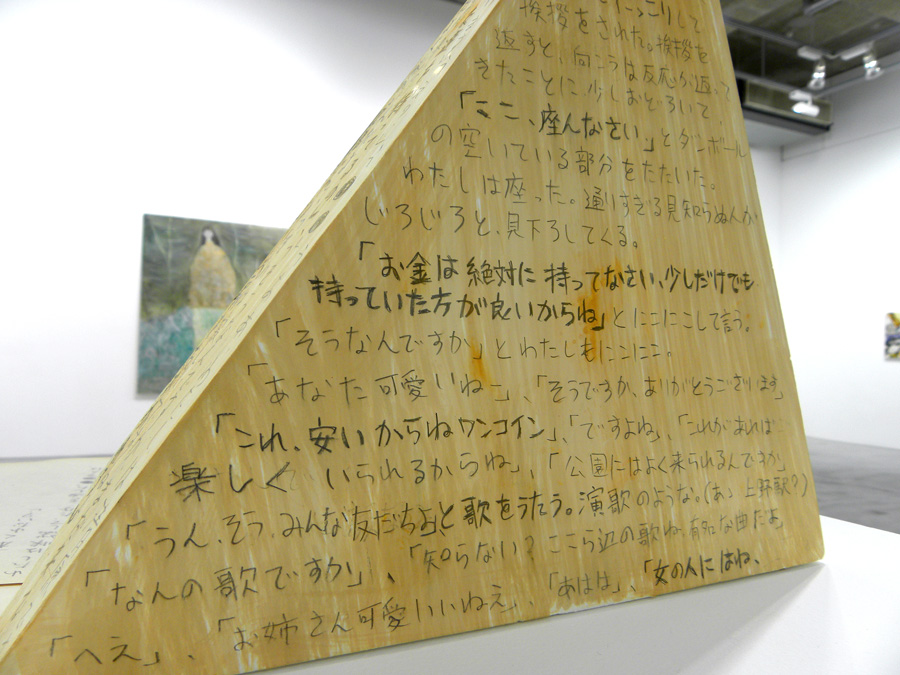 にっこりして
挨拶をされた。挨拶を
返すと、向こうは反応が返って
きたことに、少しおどろいて、
「ここ、座んなさい。」とダンボール
の空いている部分をたたいた。
わたしは座った。通りすぎる見知らぬ人が
じろじろと、見下ろしてくる。
「お金は絶対に持ってなさい、少しだけでも
持っていた方が良いからね」とにこにこして言う。
「そうなんですか」とわたしもにこにこ。
「あなた可愛いねー」、「そうですか、ありがとうございます」
「これ、安いからねワンコイン」、「ですよね」、「これがあれば
楽しくいられるからね」、「公園にはよく来られるんですか」
「うん、そう、みんな友だちよ」と歌をうたう。演歌のような。(あゝ上野駅?)
「なんの歌ですか」、「知らない?ここら辺の歌ね、有名な曲だよ」
「へえ」、「お姉さん可愛いいねえ」、「あはは」、「女の人にはね、